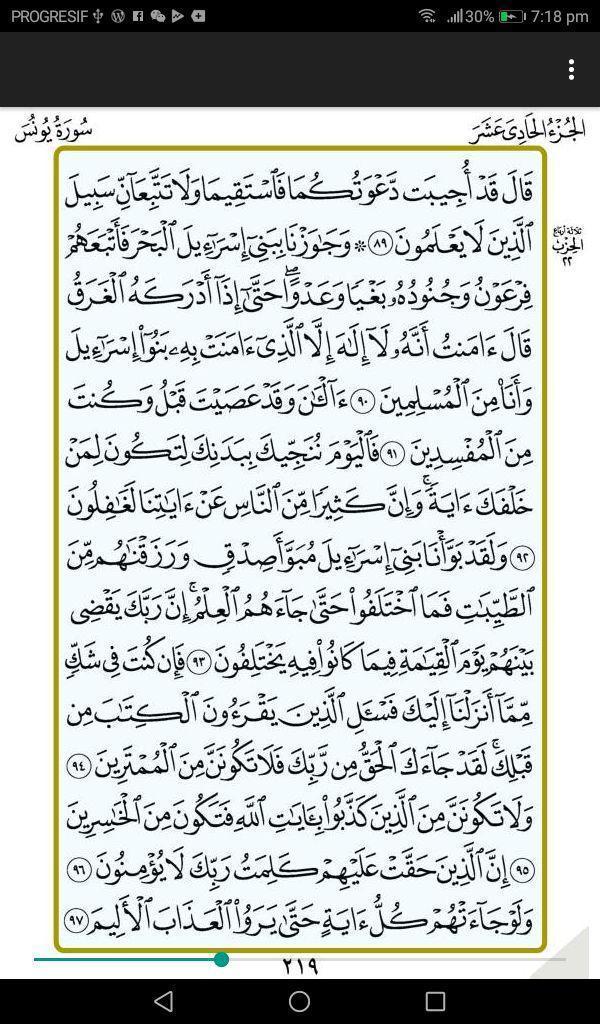 PROGRESIF 30% 7:18 pm
سُورَةُ يُونُسَ الجُزْءُ الحَادِي عَشَرَ
قَالَ قَدْ أُجِيبَت دَّعْوَتُكُمَا فَٱسْتَقِيمَا وَلَا تَتَّبِعَآنِّ سَبِيلَ
ٱلَّذِينَ لَا يَعْلَمُونَ ٨٩ ۞ وَجَٰوَزْنَا بِبَنِىٓ إِسْرَٰٓءِيلَ ٱلْبَحْرَ فَأَتْبَعَهُمْ
ثلاثة أرباع
الحزب
٢٢
فِرْعَوْنُ وَجُنُودُهُۥ بَغْيًا وَعَدْوًا ۖ حَتَّىٰٓ إِذَآ أَدْرَكَهُ ٱلْغَرَقُ
قَالَ ءَامَنتُ أَنَّهُۥ لَآ إِلَٰهَ إِلَّا ٱلَّذِىٓ ءَامَنَتْ بِهِۦ بَنُوٓا۟ إِسْرَٰٓءِيلَ
وَأَنَا۠ مِنَ ٱلْمُسْلِمِينَ ٩٠ ءَآلْـَٰٔنَ وَقَدْ عَصَيْتَ قَبْلُ وَكُنتَ
مِنَ ٱلْمُفْسِدِينَ ٩١ فَٱلْيَوْمَ نُنَجِّيكَ بِبَدَنِكَ لِتَكُونَ لِمَنْ
خَلْفَكَ ءَايَةً ۚ وَإِنَّ كَثِيرًا مِّنَ ٱلنَّاسِ عَنْ ءَايَٰتِنَا لَغَٰفِلُونَ
٩٢ وَلَقَدْ بَوَّأْنَا بَنِىٓ إِسْرَٰٓءِيلَ مُبَوَّأَ صِدْقٍ وَرَزَقْنَٰهُم مِّنَ
ٱلطَّيِّبَٰتِ فَمَا ٱخْتَلَفُوا۟ حَتَّىٰ جَآءَهُمُ ٱلْعِلْمُ ۚ إِنَّ رَبَّكَ يَقْضِى
بَيْنَهُمْ يَوْمَ ٱلْقِيَٰمَةِ فِيمَا كَانُوا۟ فِيهِ يَخْتَلِفُونَ ٩٣ فَإِن كُنتَ فِى شَكٍّ
مِّمَّآ أَنزَلْنَآ إِلَيْكَ فَسْـَٔلِ ٱلَّذِينَ يَقْرَءُونَ ٱلْكِتَٰبَ مِن
قَبْلِكَ ۚ لَقَدْ جَآءَكَ ٱلْحَقُّ مِن رَّبِّكَ فَلَا تَكُونَنَّ مِنَ ٱلْمُمْتَرِينَ ٩٤
وَلَا تَكُونَنَّ مِنَ ٱلَّذِينَ كَذَّبُوا۟ بِـَٔايَٰتِ ٱللَّهِ فَتَكُونَ مِنَ ٱلْخَٰسِرِينَ
٩٥ إِنَّ ٱلَّذِينَ حَقَّتْ عَلَيْهِمْ كَلِمَتُ رَبِّكَ لَا يُؤْمِنُونَ ٩٦
وَلَوْ جَآءَتْهُمْ كُلُّ ءَايَةٍ حَتَّىٰ يَرَوُا۟ ٱلْعَذَابَ ٱلْأَلِيمَ ٩٧
٢١٩